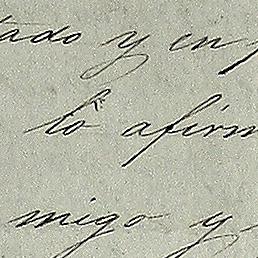 tado y en
lo afirm
migo y